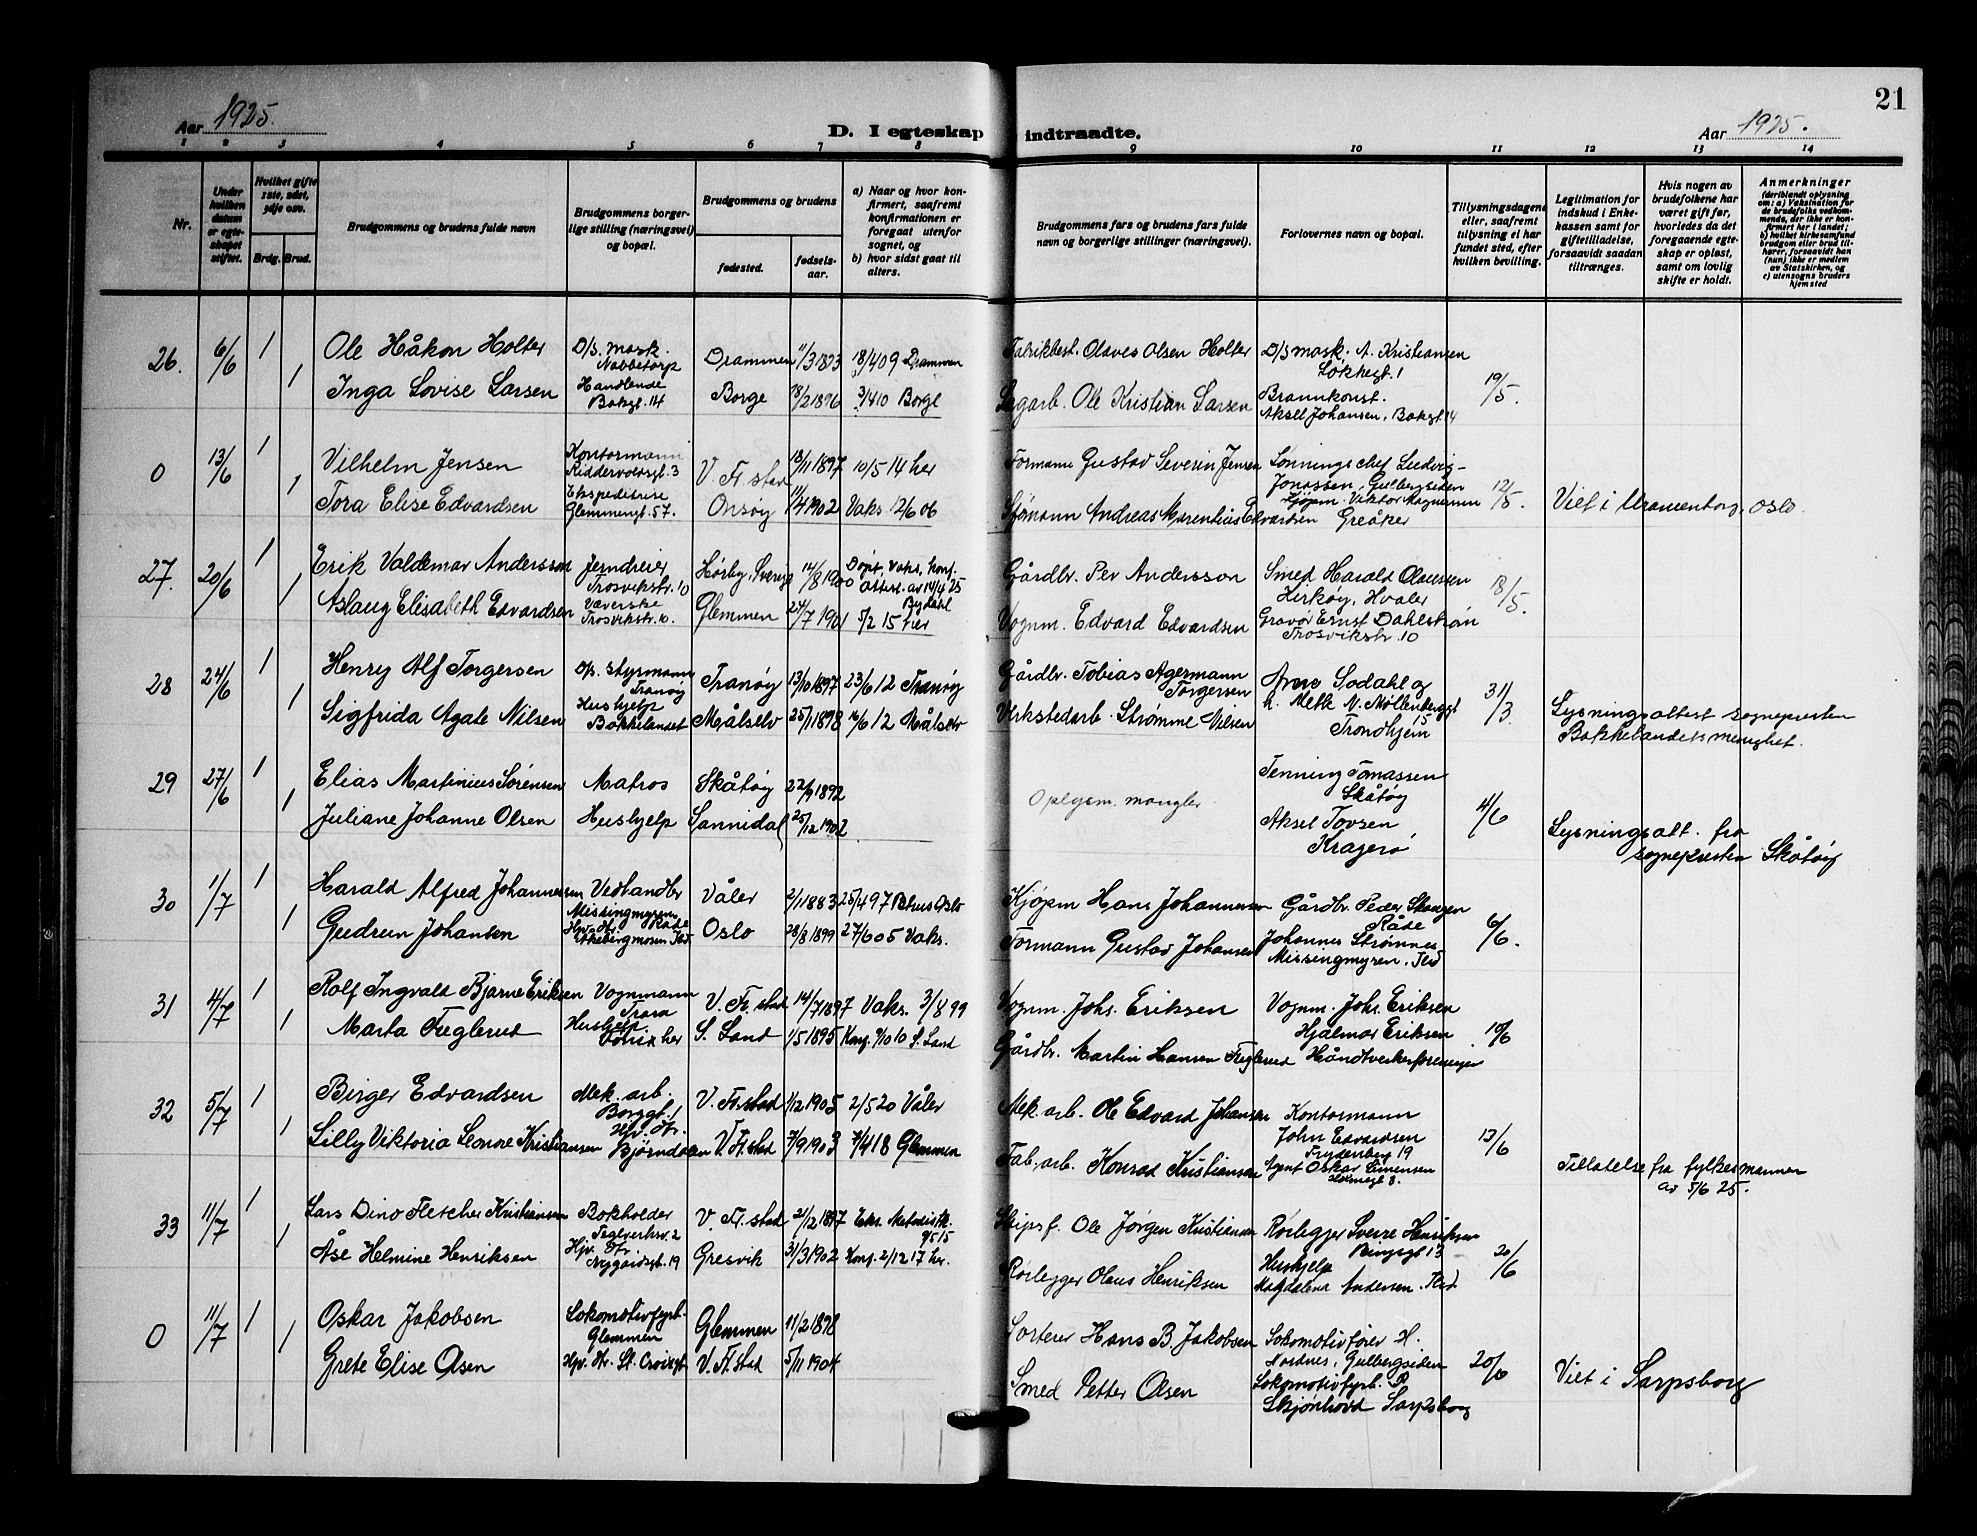 21
Aar 1925.
D. I egteskap indtraadte.
Aar 1925.
1 2 3 4 5 6 7 8 9 10 11 12 13 14
Nr.
Under hvilken datum er egteskapet stiftet.
Hvilket gifte 1ste, 2det, 3dje osv.
Brdg. Brud.
Brudgommens og brudens fulde navn
Brudgommens borgerlige stilling (næringsvei) og bopæl.
Brudgommens og brudens
fødested.
fødselsaar.
a) Naar og hvor konfirmert, saafremt konfirmationen er foregaat utenfor sognet, og
b) hvor sidst gaat til alters.
Brudgommens fars og brudens fars fulde navn og borgerlige stillinger (næringsvei).
Forlovernes navn og bopæl.
Tillysningsdagene eller, saafremt tillysning ei har fundet sted, efter hvilken bevilling.
Legitimation for indskud i Enkekassen samt for giftetilladelse, forsaavidt saadan tiltrænges.
Hvis nogen av brudefolkene har været gift før, hvorledes da det foregaaende egteskap er opløst, samt om lovlig skifte er holdt.
Anmerkninger
(deriblandt oplysning om: a) Vaksination for de brudefolks vedkommende, der ikke er konfirmert her i landet; b) hvilket kirkesamfund brudgom eller brud tilhører, forsaavidt han (hun) ikke er medlem av Statskirken, og c) utensogns bruders hjemsted
26. 6/6 1 Ole Håkon Holter D/S. mask. Nabbetorp Drammen 11/3 1893 18/4 09 Drammen Fabrikbest. Olaves Olsen Holter D/S mask. A. Kristiansen Løkkegt. 1 19/5.
1 Inga Lovise Larsen Handlende Bakgt. 14 Borge 18/2 1896 3/4 10 Borge Sagarb. Ole Kristian Larsen Brannkonst. Aksel Johansen, Bakgt 14
0 13/6 1 Vilhelm Jensen Kontormann Riddervoldsgt. 3 V. Fr.stad 18/11 1897 10/5 14 her Formann Gustav Severin Jensen Lønningschef Ludvig Jonassen, Gulbergsiden 12/5. Viet i Uranienborg, Oslo.
1 Tora Elise Edvardsen Ekspeditrise Glemmengt. 57. Onsøy 11/4 1902 Vaks. 12/6 06 Sjømann Andreas Marentius Edvardsen Kjøpm. Viktor Magnussen Greåker
27. 20/6 1 Erik Valdemar Andersson Jerndreier Trosvikstr. 10 Hørby, Sverige 14/8 1900 Døpt, Vaks, Konf. Attest. av 14/4 25 Gårdbr. Per Andersson Smed Harald Olaussen Kirkøy, Hvaler 18/5.
1 Aslaug Elisabeth Edvardsen Væverske Trosvikstr. 10. Glemmen 24/7 1901 5/2 15 her Vognm. Edvard Edvardsen Gravør Ernst Dahlskön Trosvikstr. 10
28 24/6 1 Henry Alf Torgersen Styrmann Tranøy Tranøy 13/10 1897 23/6 12 Tranøy Gårdbr. Tobias Agermann Torgersen Arne Sodahl og 31/3. Lysningsattest sogneprsten Bakkelandets menighet.
1 Sigfrida Agate Nilsen Hushjelp Bakkelandet Målselv 25/1 1898 16/6 12 Målselv Verkstedarb. Strømme Nilsen Møllenberggt 15 Trondhjem
29 27/6 1 Elias Martinius Sørensen Matros Skåtøy 22/9 1892 Oplysn. mangler Tenning Tomassen Skåtøy 4/6 Lysningsatt. fra sogneprsten Skåtøy
1 Juliane Johanne Olsen Hushjelp Sannidal 25/12 1902 Aksel Tovsen Kragerø
30 1/7 1 Harald Alfred Johannessen Vedhandler Missingmyren, Råde Våler 2/1 1883 25/4 97 Oslo Kjøpm Hans Johannessen Gårdbr. Peder Skauen Råde 6/6.
1 Gudrun Johansen Oslo 28/8 1899 27/6 05 Vaks. Formann Gustav Johansen Johannes Strømnes Missingmyren.
31 4/7 1 Rolf Ingvald Bjarne Eriksen Vognmann Trara V. Fr.stad 14/7 1897 Vaks. 3/8 99 Vognm. Johs. Eriksen Vognm. Johs. Eriksen 10/6
1 Marta Fuglerud Hushjelp her S. Land 1/5 1895 Konf. 9/10 10 S. Land Gårdbr. Martin Hansen Fuglerud Hjalmar Eriksen Håndtverkerforeningen
32 5/7 1 Birger Edvardsen Mek. arb. Borggt. 1 V. Fr.stad 1/2 1905 2/5 20 Våler Mek. arb. Ole Edvard Johansen Kontormann John Edvardsen Frydenberg 19 13/6 Tillatelse fra fylkesmannen av 5/6 25.
1 Lilly Viktoria Leonore Kristiansen Hjv. dtr. Bjørndalen V. Fr.stad 7/9 1903 7/4 18 Glemmen Fab. arb. Konrad Kristiansen Agent Oskar Simensen
33 11/7 1 Lars Dino Fletcher Kristiansen Bokholder Teglverksv. 2 V. Fr.stad 21/2 1897 Eks. Metodistk. Skipsf. Ole Jørgen Kristiansen Rørlegger Sverre Henriksen Ringsgt 13 20/6
1 Åse Helmine Henriksen Hjv. dtr. Nygårdsgt. 19 Gresvik 31/3 1902 Konf. 2/12 17 her. Rørlegger Olaus Henriksen Hushjelp Magdalena Andersen.
0 11/7 1 Oskar Jakobsen Lokomotivfyrb. Glemmen Glemmen 11/2 1898 Sorterer Hans B. Jakobsen Lokomotivfører H. Nordnes, Gulbergsiden 20/6 Viet i Sarpsborg
1 Grete Elise Olsen Hjv. dtr. St. Croixgt. V. Fr.stad 5/11 1904 Smed Petter Olsen Lokomotivfyrb. Sarpsborg